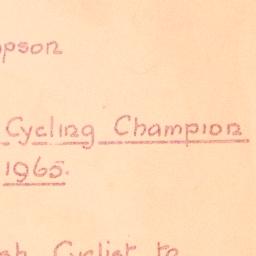 pson
Cycling Champion
1965.
sh Cyclist to